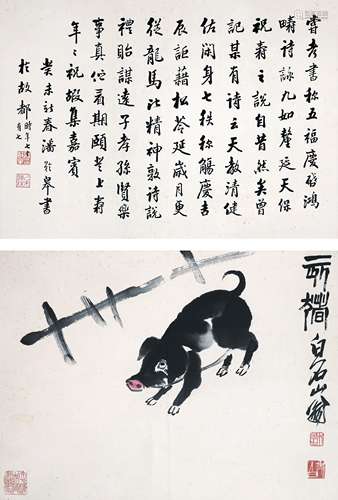 嘗考書称五福慶啓鴻
疇詩詠九如釐延天保
祝壽之說自昔然矣曾
記某有詩云天教清健
佑閑身七秩称觴慶吉
辰詎藉松苓延歲月更
從龍馬比精神敦詩說
禮貽謀遠子孝孫賢樂
事真佇看期頤老上壽
年年祝嘏集嘉賓
癸未社春潘齡皋書
於故都時年七十有七
白石山翁